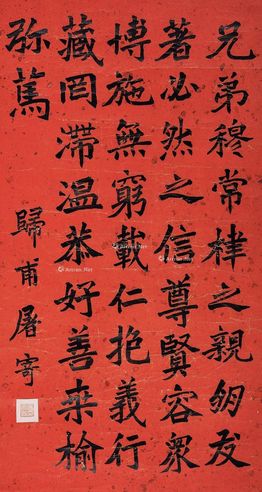 兄弟穆常棣之親朋友
著必然之信尊賢容衆
博施無窮載仁抱義行
藏罔滯温恭好善桒榆
弥篤
歸甫屠寄
Artron.Net
Artron.Net